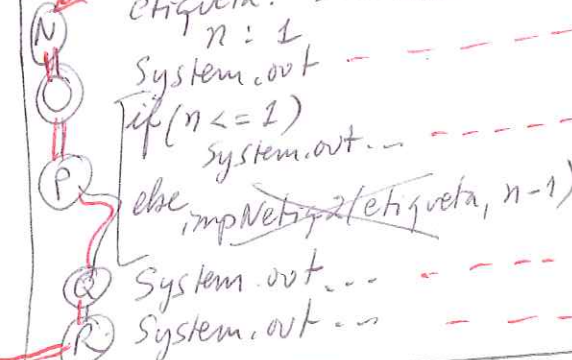 etiqueta:
N
n : 1
System.out
O
if (n <= 1)
System.out...
P
else impNetiq2(etiqueta, n-1)
Q System.out...
R System.out...